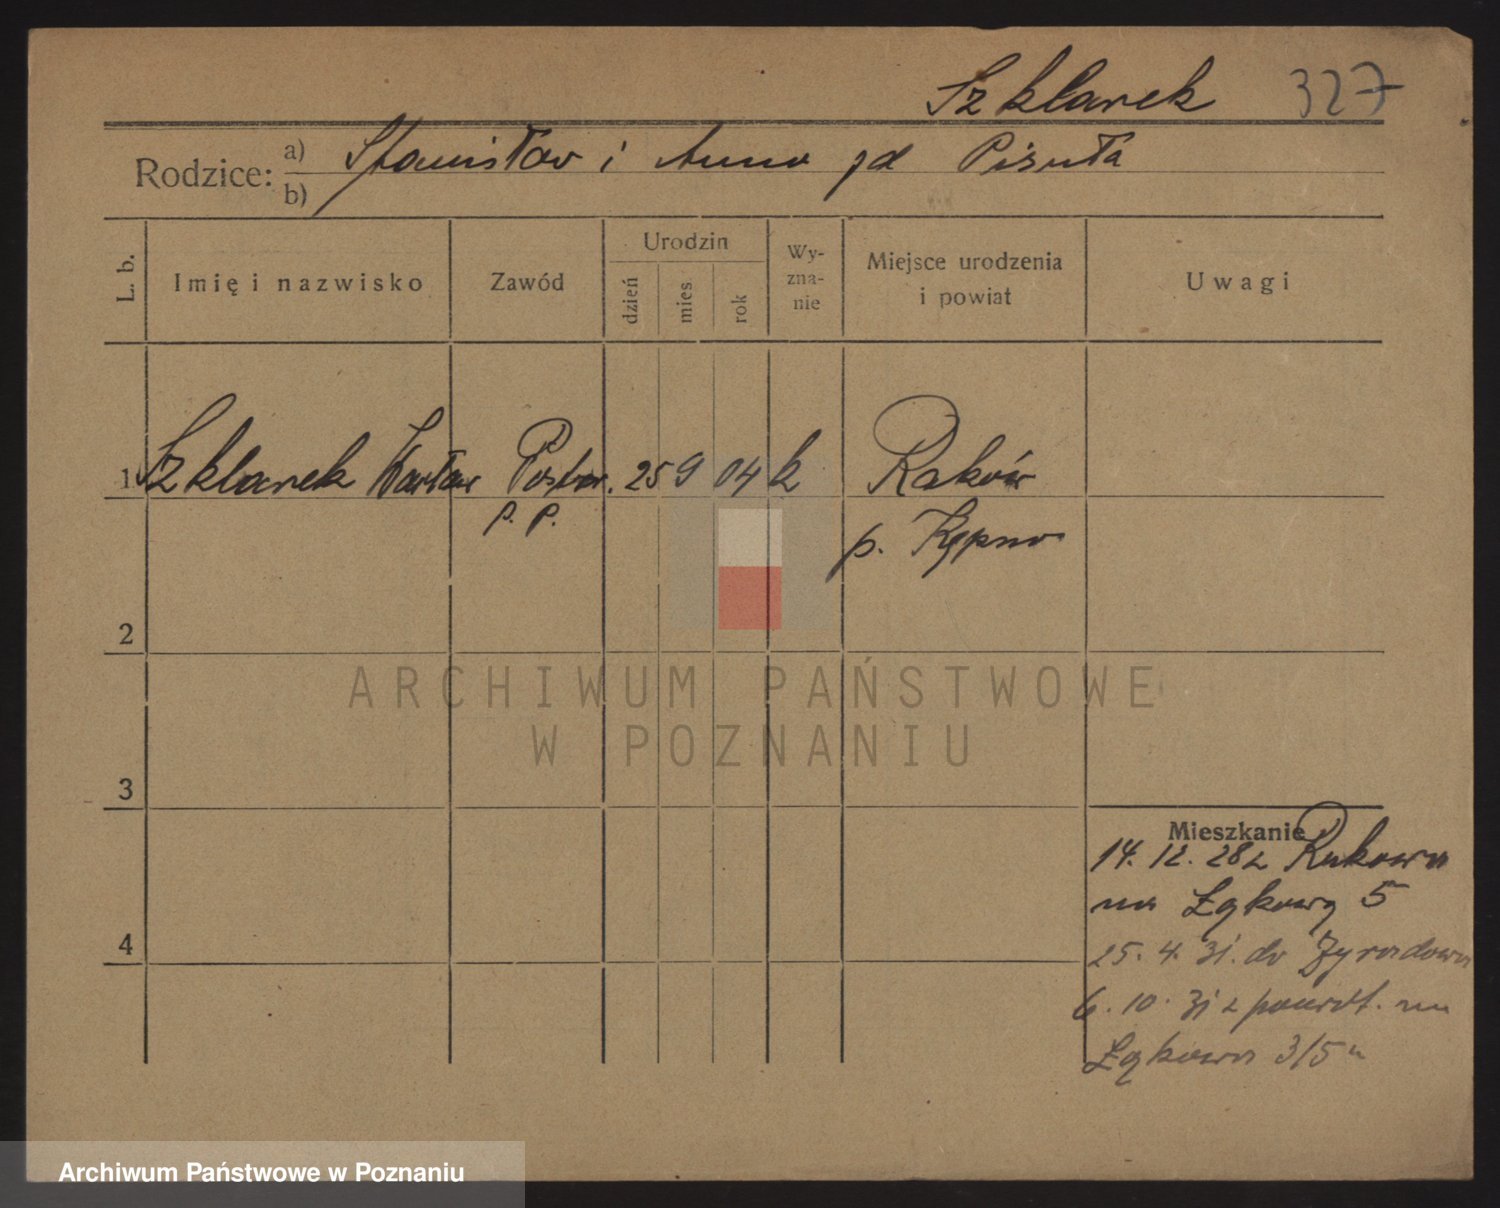 Szklarek 327
Rodzice: a) Stanisław i Anna zd Pisuła
b)
L. b.
Imię i nazwisko
Zawód
Urodzin
dzień
mies
rok
Wy-
zna-
nie
Miejsce urodzenia
i powiat
Uwagi
1 Szklarek Wacław Poster. 25 9 04 k Raków
P. P. p. Kępno
2
3
4
Mieszkanie
14. 12. 28 z Rakowa
na Łąkową 5
25. 4. 31. do Żyrardowa
6. 10. 31 z powrot. na
Łąkowa 3/5
ARCHIWUM PAŃSTWOWE
W POZNANIU
Archiwum Państwowe w Poznaniu